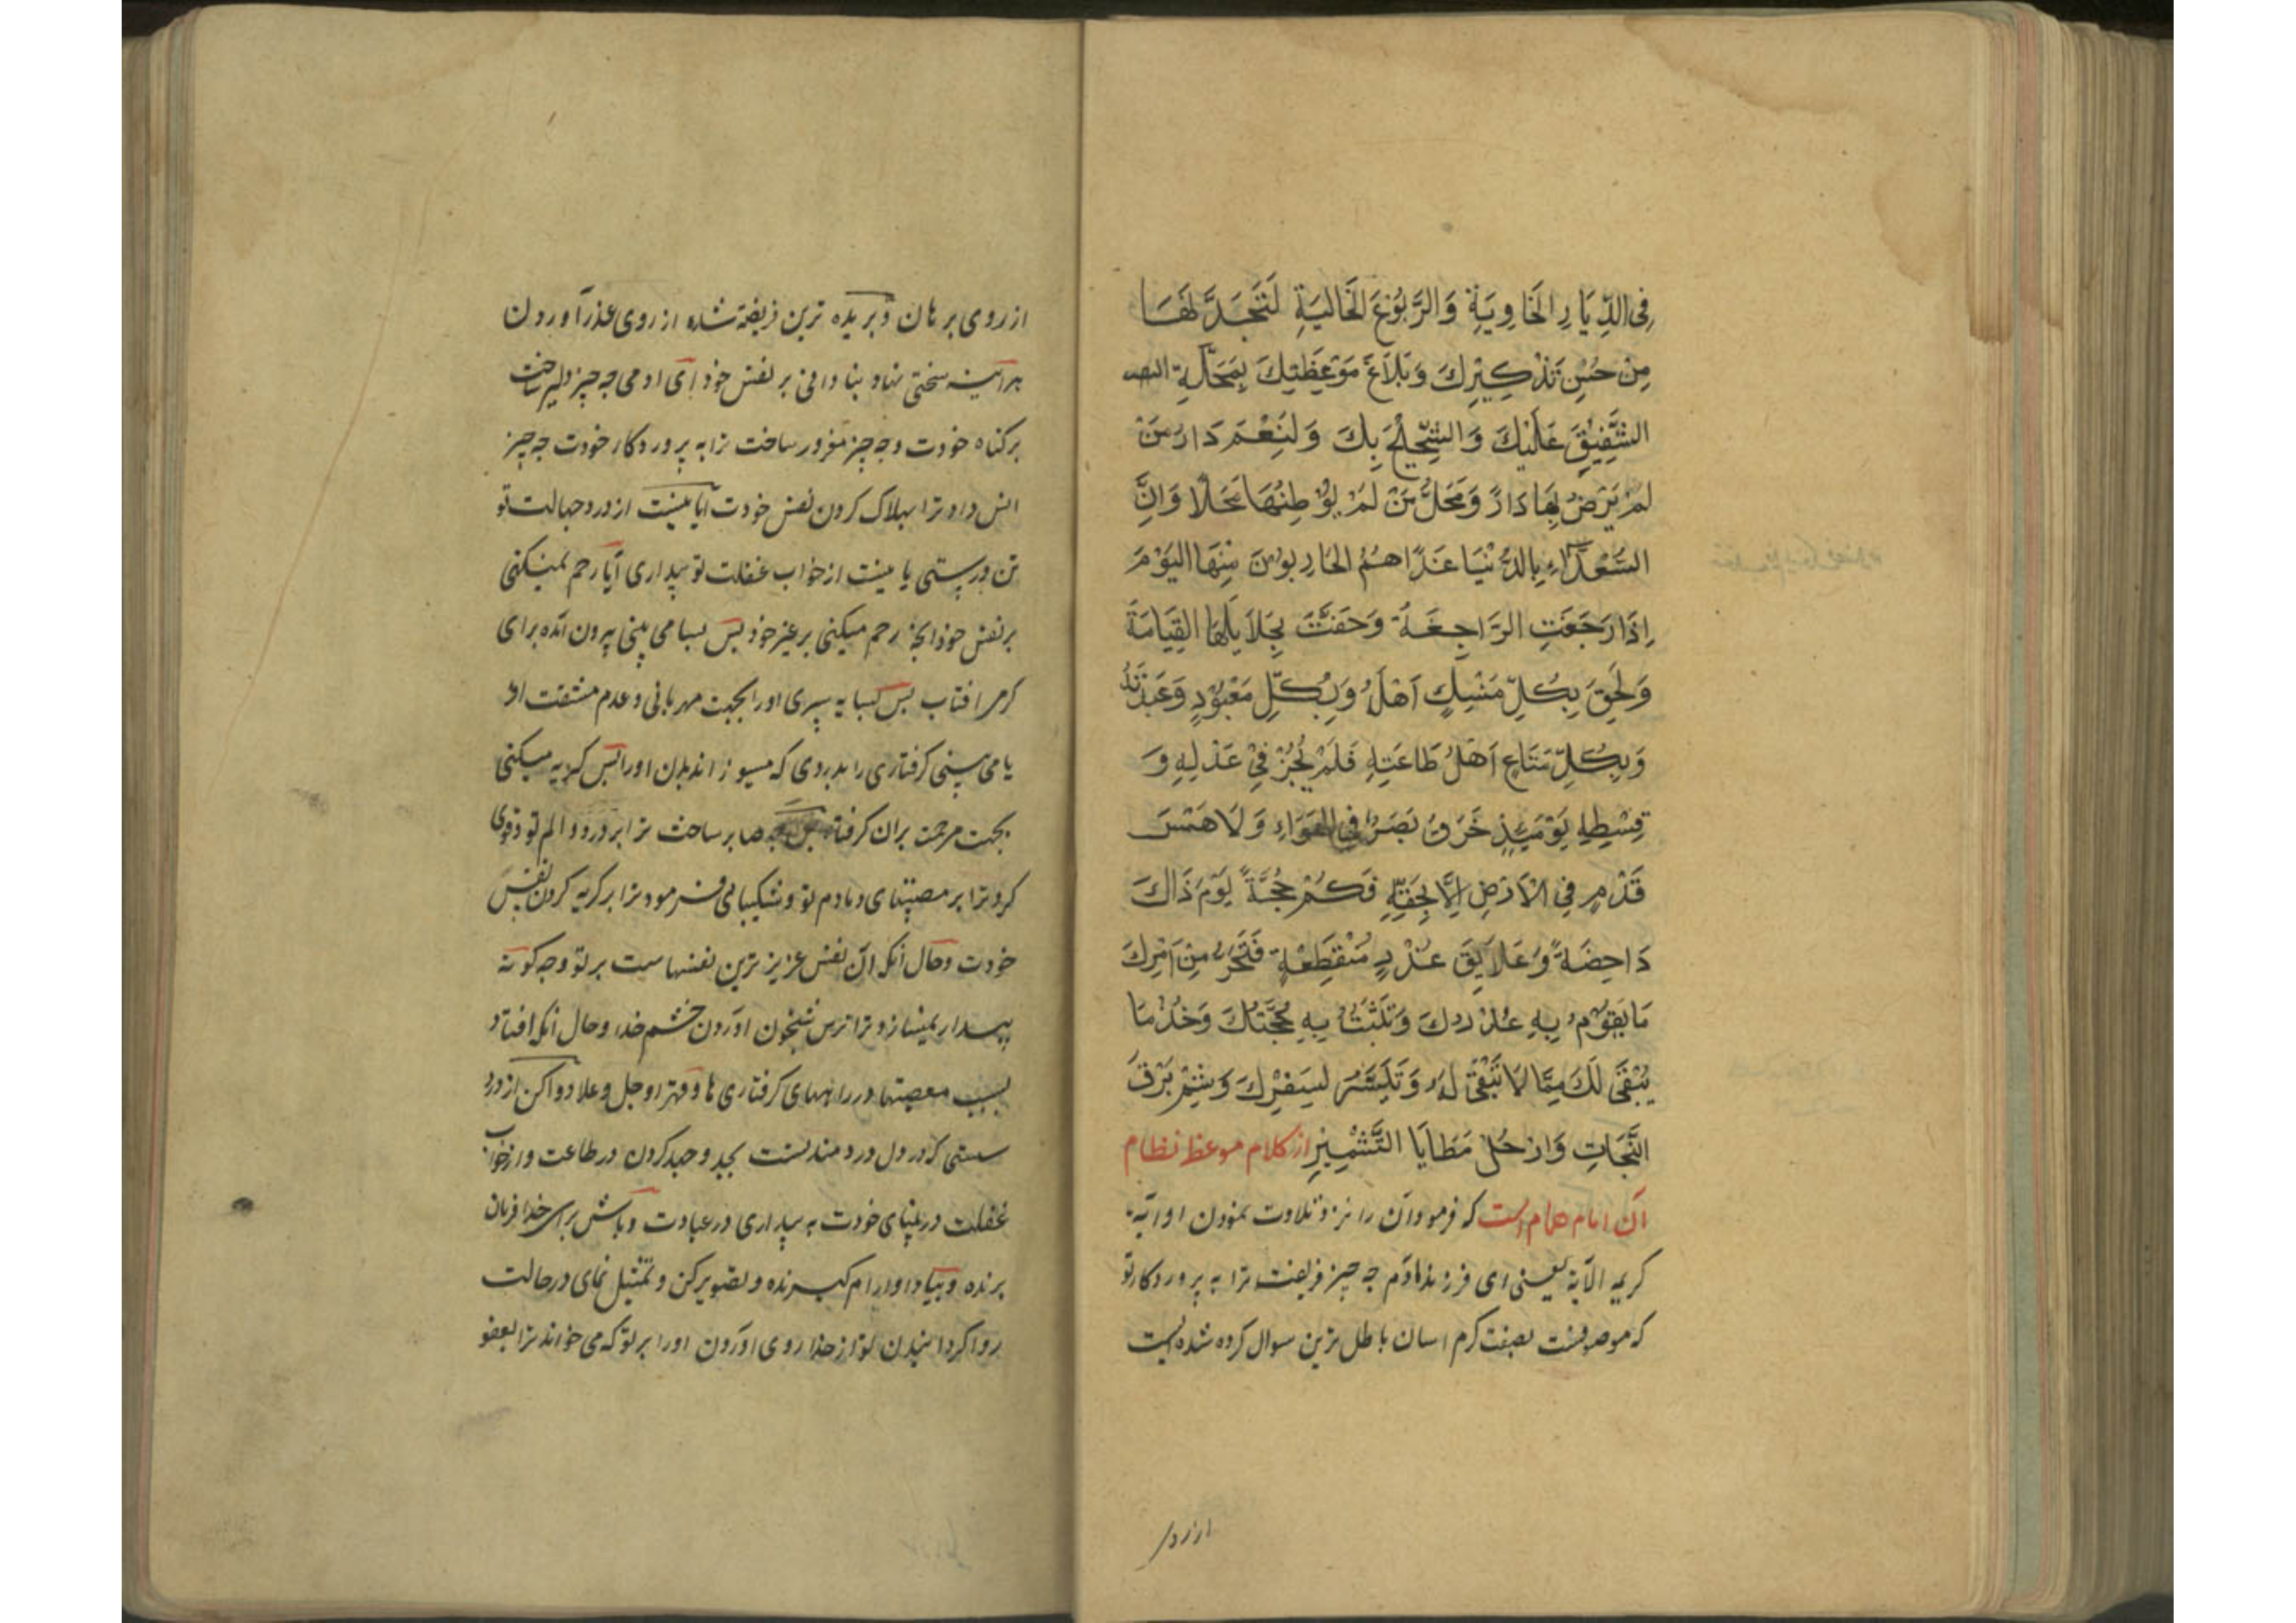 فِی الدِّیَارِ الخَاوِیَةِ وَالرَّبُوْعَ الخَالِیَةِ لَتَجَدَّ لَهَا
مِنْ حُسْنِ تَذْکِیْرِكَ وَبَلَاغَ مَوْعَظَتِكَ بِمَحَلَّةِ
الشَّفِیْقَ عَلَیْكَ وَالشَّحِیْحَ بِكَ وَلَنِعْمَ دَارُ مَنْ
لَمْ یَرْضَ بِهَا دَارً وَمَحَلُّ مَنْ لَمْ یُوْطِنْهَا مَحَلًّا وَاِنَّ
السَّعَدَآءِ بِالدُّنْیَا غَدًا هُمُ الهَارِبُوْنَ مِنْهَا الیَوْمَ
اِذَا رَجَعَتِ الرَّاجِعَةُ وَحَقَّتْ بِجَلَایِلِهَا القِیَامَةَ
وَلَحِقَ بِکُلِّ مَنْسِكٍ اَهْلَهُ وَبِکُلِّ مَعْبُوْدٍ وَعَبَدَتُهُ
وَبِکُلِّ مَتَاعٍ اَهْلُ طَاعَتِهِ فَلَمْ یُجْزَ فِیْ عَدْلِهِ وَ
قِسْطِهِ یَوْمَئِذٍ خَرَقُ بَصَرٍ فِی الهَوَاءِ وَلَا هَمْسَ
قَدَمٍ فِی الْاَرْضِ اِلَّا بِحَقِّهِ فَکَمْ حُجَّةً یَوْمَ ذَاكَ
دَاحِضَةً وَعَلَایِقَ عُذْرٍ مُنْقَطِعَةٍ فَتَحَرَّ مِنْ اَمْرِكَ
مَا یَقُوْمُ بِهِ عُذْرُكَ وَتَثْبَتُ بِهِ حُجَّتُكَ وَخُذْ مَا
یَبْقَی لَكَ مِمَّا لَا تَبْقَی لَهُ وَتَیَسَّرْ لِسَفَرِكَ وَشِمْ بَرْقَ
النَّجَاتِ وَارْحَلْ مَطَایَا التَّشْمِیْرِ از کلام موعظ نظام
آن امام همام است که فرمود آن را نزد تلاوت نمودن او آیه
کریمه الآیة یعنی ای فرزند آدم چه چیز فریفت ترا به پروردکار تو
که موصوفست بصفت کرم اسان باطل ترین سوال کرده شده است
از روی
از روی برهان و بریده ترین فریفته شده از روی عذر آوردن
هرآینه سختی نهاد بنادانی بر نفس خود ای ادمی چه چیز دلیر ساخت
بر کناه خودت و چه چیز مغرور ساخت ترا به پروردکار خودت چه چیز
انس داد ترا بهلاک کردن نفس خودت آیا نیست از درد جهالت تو
تن درستی یا نیست از خواب غفلت تو بیداری آیا رحم نمیکنی
بر نفس خود انچه رحم میکنی بر غیر خود پس بسا می بینی بیرون آمده برای
کرمی افتاب پس بسایه سپری او را بجهت مهربانی و عدم مشقت او
یا می بینی کرفتاری را بدردی که میسوزاند بدن او را پس کریه میکنی
بجهت مرحمت بران کرفتار پس چه صابر ساخت ترا بر درد و الم تو و قوی
کرد ترا بر مصیبتهای دمادم تو و شکیبائی فرمود ترا بر کریه کردن نفس
خودت و حال آنکه آن نفس عزیز ترین نفسهاست بر تو و چه کونه
بیدار نمیسازد ترا ترس شبخون اوردن خشم خدا و حال آنکه افتاد
بسبب معصیتها در راههای کرفتاری ها و قهر او جل و علا دوا کن از درد
سستی که در دل دردمندتست بجد و جهد کردن در طاعت و از خواب
غفلت در بینای خودت به بیداری در عبادت و باش برای خدا فرمان
برنده و بیاد او ارام کیرنده و تصویر کن و تمثیل نمای در حالت
روا کردانیدن تو از خدا روی اوردن او را بر تو که می خواند ترا بعفو